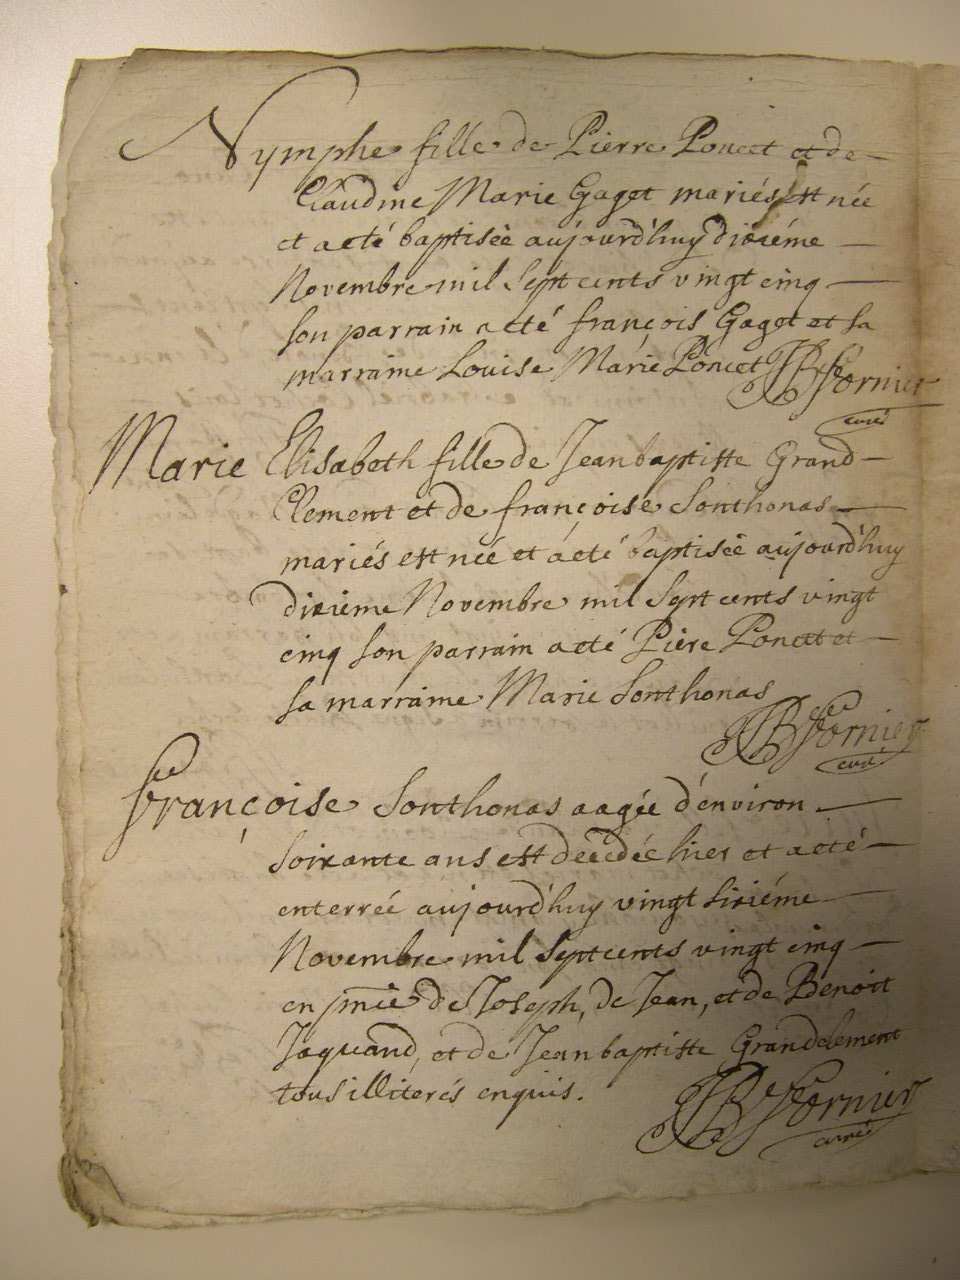 Nymphe fille de Pierre Poncet et de
Claudine Marie Gaget mariés est née
et a eté baptiseè aujourd'huy dixiéme
Novembre mil sept cents vingt cinq
son parrain a eté françois Gaget et sa
marraine Louise Marie Poncet JB fornier
curé
Marie Elisabeth fille de Jeanbaptiste Grand
Clement et de françoise Sonthonas
mariés est née et á eté baptiseè aujourd'huy
dixieme Novembre mil sept cents vingt
cinq son parrain a eté Piere Poncet et
sa marraine Marie Sonthonas
JB fornier
curé
françoise Sonthonas aagée d'environ
soixante ans est decedée hier et a eté
enterrée aujourd'huy vingt sixiéme
Novembre mil sept cents vingt cinq
en pnce de Joseph, de Jean, et de Benoit
Jaquand, et de Jeanbaptiste Grandclement
tous illiterés enquis.
JB fornier
curé